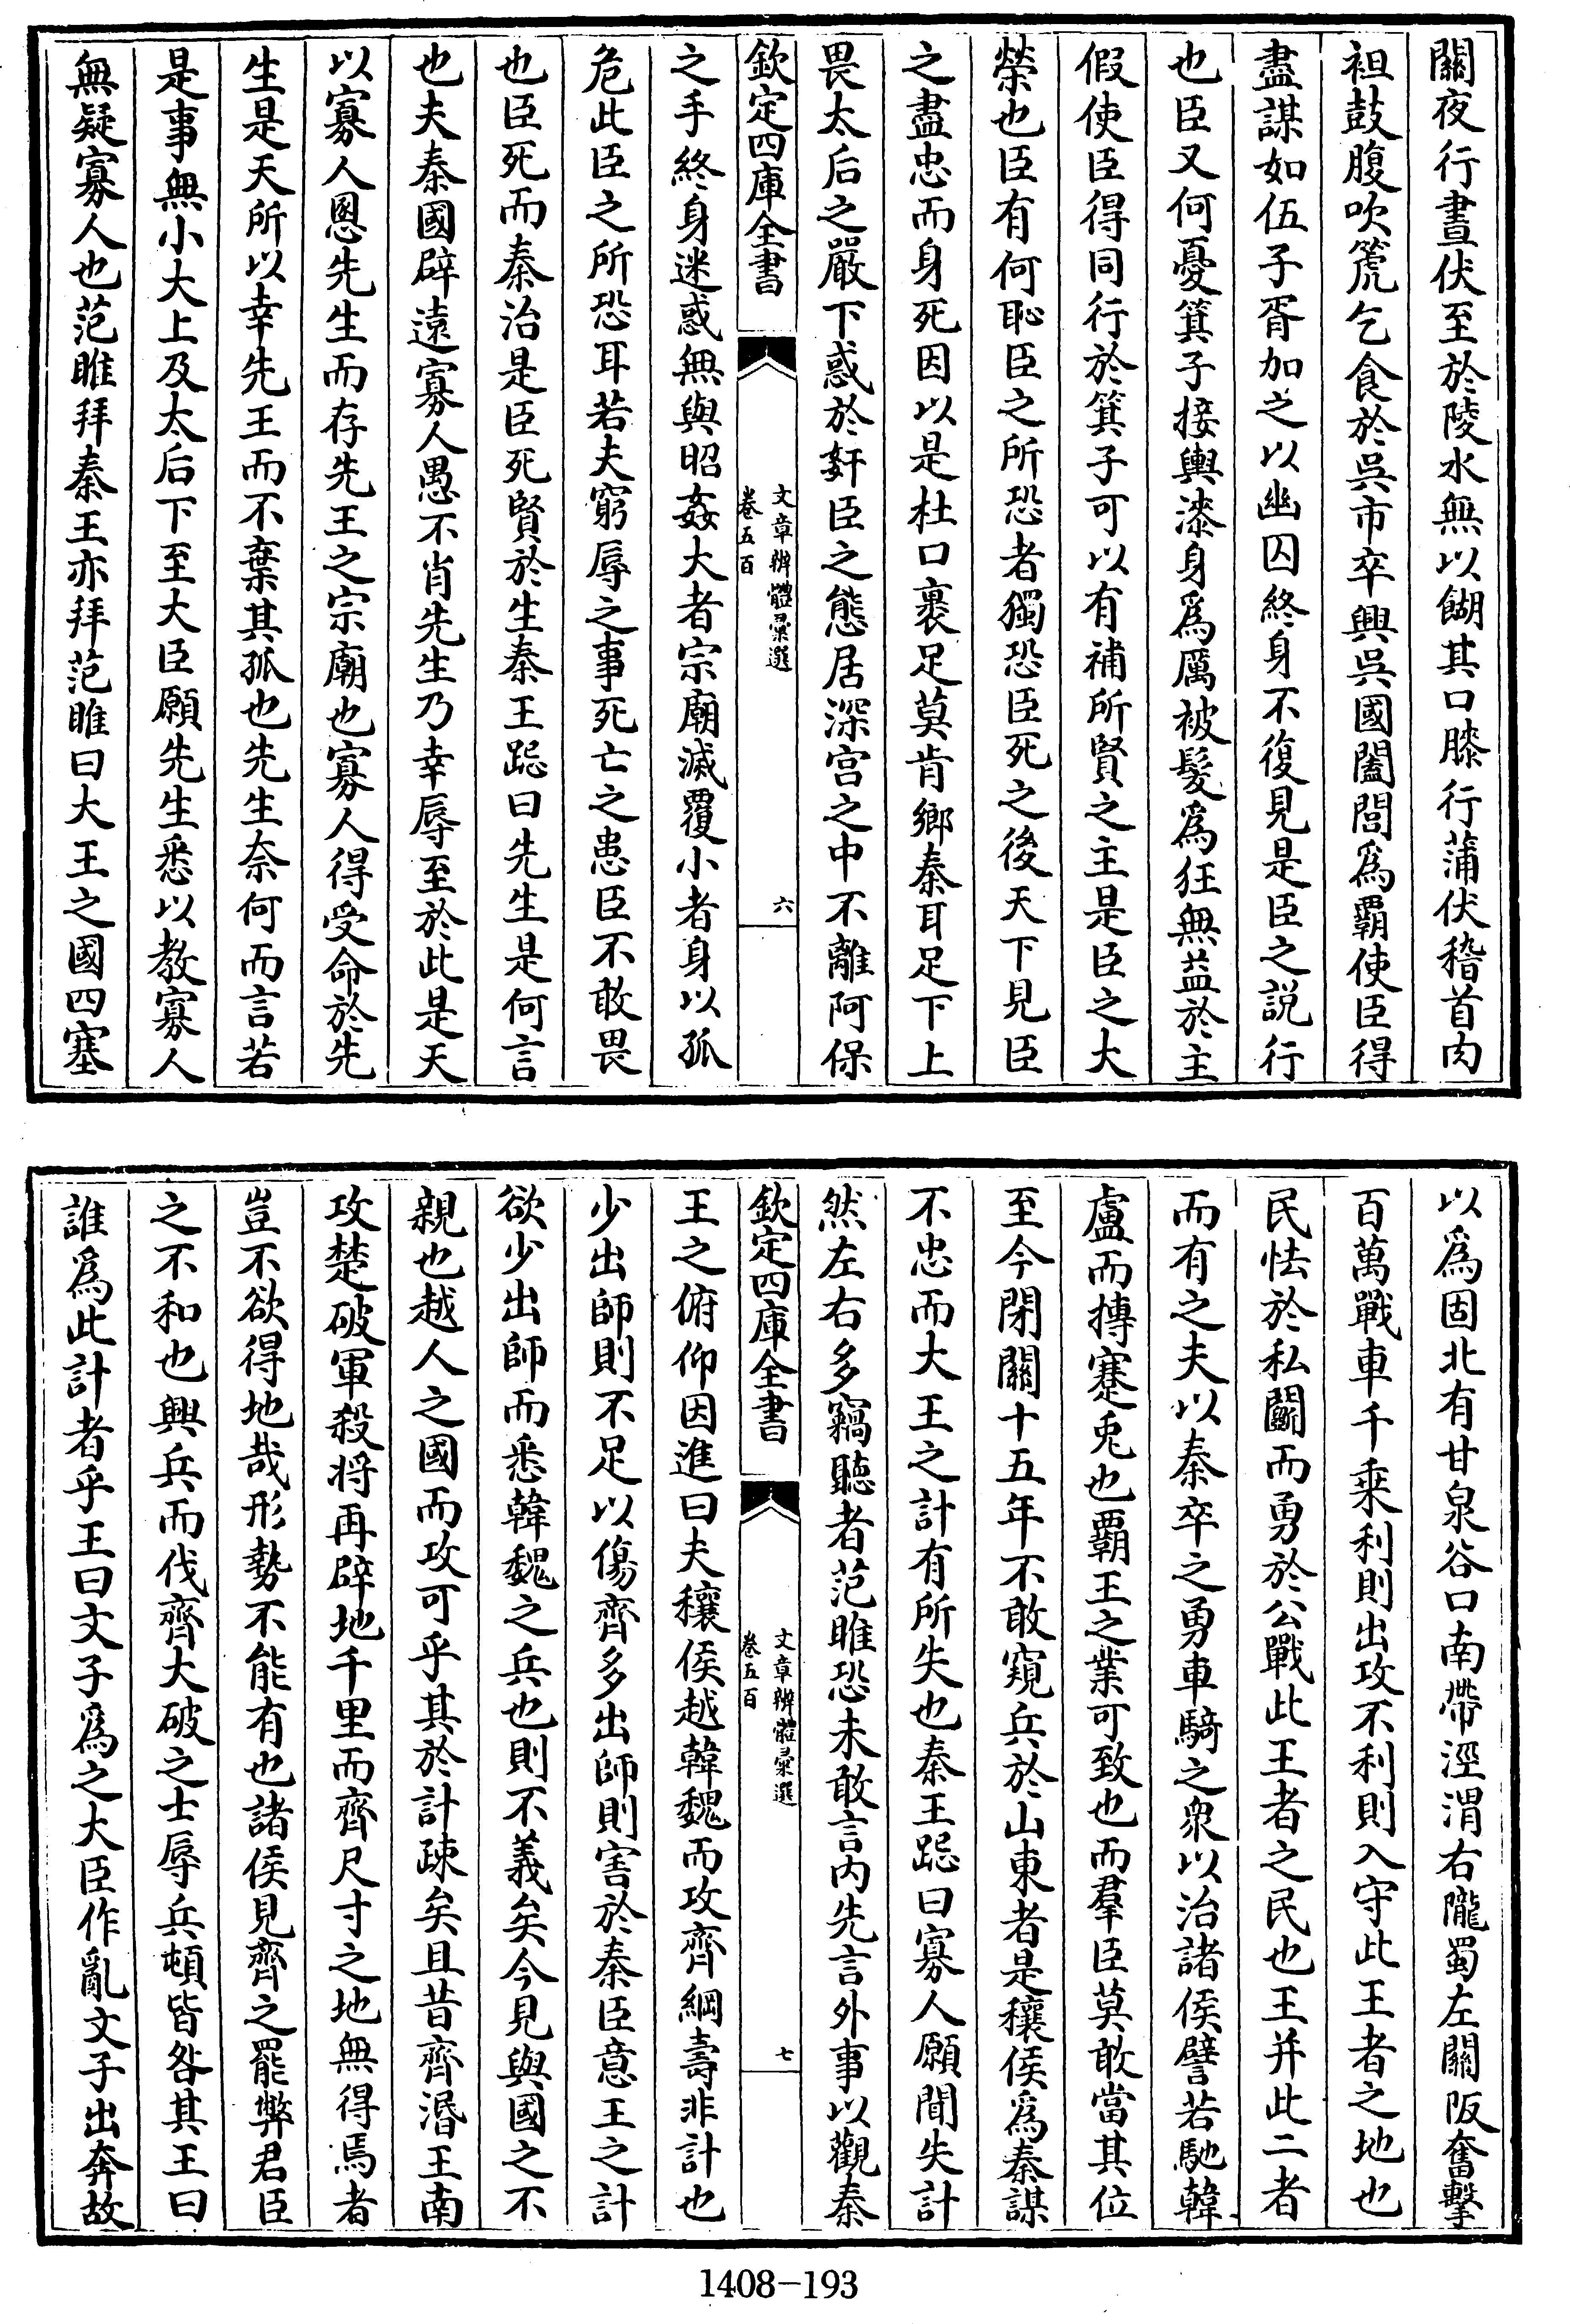 關夜行晝伏至於陵水無以餬其口膝行蒲伏稽首肉
袒鼓腹吹箎乞食於吳市卒興吳國闔閭爲霸使臣得
盡謀如伍子胥加之以幽囚終身不復見是臣之說行
也臣又何憂箕子接輿漆身爲厲被髮爲狂無益於主
假使臣得同行於箕子可以有補所賢之主是臣之大
榮也臣有何恥臣之所恐者獨恐臣死之後天下見臣
之盡忠而身死因以是杜口裹足莫肯鄉秦耳足下上
畏太后之嚴下惑於奸臣之態居深宮之中不離阿保
欽定四庫全書
文章辨體彙選
卷五百
六
之手終身迷惑無與昭姦大者宗廟滅覆小者身以孤
危此臣之所恐耳若夫窮辱之事死亡之患臣不敢畏
也臣死而秦治是臣死賢於生秦王跽曰先生是何言
也夫秦國辟遠寡人愚不肖先生乃幸辱至於此是天
以寡人慁先生而存先王之宗廟也寡人得受命於先
生是天所以幸先王而不棄其孤也先生奈何而言若
是事無小大上及太后下至大臣願先生悉以教寡人
無疑寡人也范雎拜秦王亦拜范雎曰大王之國四塞
以爲固北有甘泉谷口南帶涇渭右隴蜀左關阪奮擊
百萬戰車千乘利則出攻不利則入守此王者之地也
民怯於私鬭而勇於公戰此王者之民也王并此二者
而有之夫以秦卒之勇車騎之衆以治諸侯譬若馳韓
盧而搏蹇兎也霸王之業可致也而羣臣莫敢當其位
至今閉關十五年不敢窺兵於山東者是穰侯爲秦謀
不忠而大王之計有所失也秦王跽曰寡人願聞失計
然左右多竊聽者范雎恐未敢言内先言外事以觀秦
欽定四庫全書
文章辨體彙選
卷五百
七
王之俯仰因進曰夫穰侯越韓魏而攻齊綱壽非計也
少出師則不足以傷齊多出師則害於秦臣意王之計
欲少出師而悉韓魏之兵也則不義矣今見與國之不
親也越人之國而攻可乎其於計疎矣且昔齊湣王南
攻楚破軍殺将再辟地千里而齊尺寸之地無得焉者
豈不欲得地哉形勢不能有也諸侯見齊之罷弊君臣
之不和也興兵而伐齊大破之士辱兵頓皆咎其王曰
誰爲此計者乎王曰文子爲之大臣作亂文子出奔故
1408-193